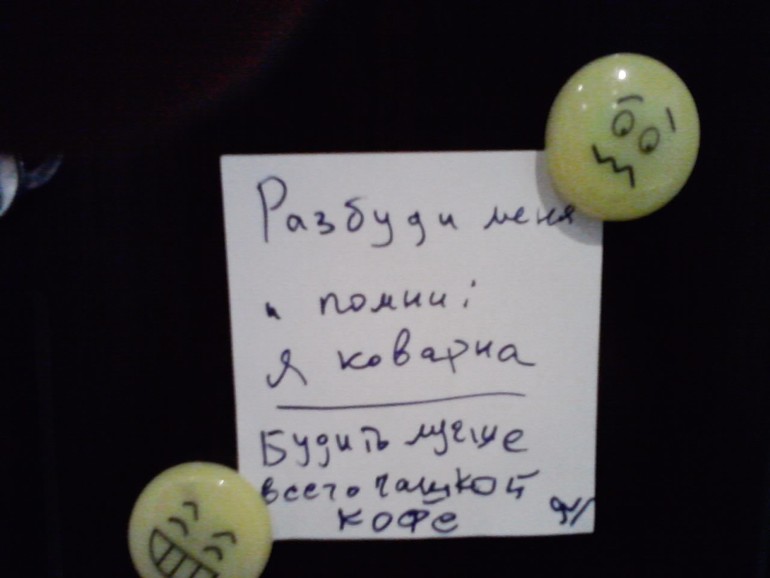 Разбуди меня
и помни:
я коварна
Будить лучше
всего чашкой
кофе